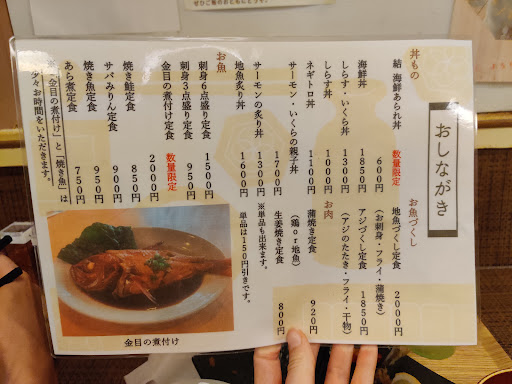 ぜひご飯のおともにどうぞ。
おしながき
丼もの
結 海鮮あられ丼 数量限定 600円
海鮮丼 1850円
しらす・いくら丼 1300円
しらす丼 1000円
ネギトロ丼 1100円
サーモン・いくらの親子丼 1700円
サーモンの炙り丼 1300円
地魚炙り丼 1600円
お魚
刺身6点盛り定食 1500円
刺身3点盛り定食 950円
金目の煮付け定食 数量限定 2000円
焼き鮭定食 850円
サバみりん定食 900円
焼き魚定食 950円
あら煮定食 750円
「金目の煮付け」と「焼き魚」は
少々お時間をいただきます。
お魚づくし
地魚づくし定食 2000円
(お刺身・フライ・蒲焼き)
アジづくし定食 1850円
(アジのたたき・フライ・干物)
お肉
蒲焼き定食 920円
(鶏or地魚)
生姜焼き定食 800円
※単品も出来ます。
単品は150円引きです。
金目の煮付け